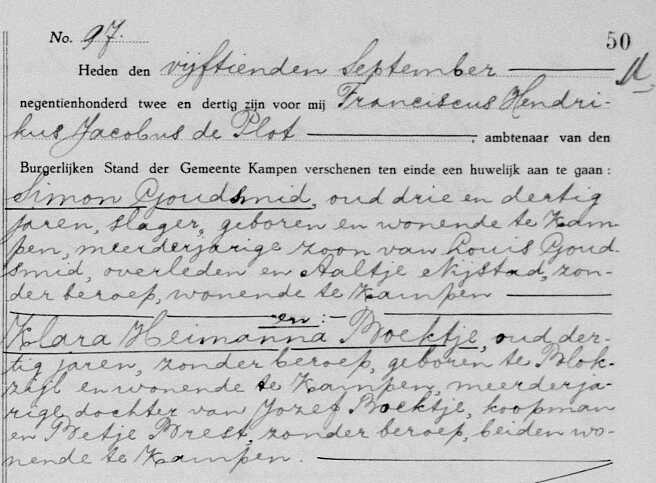 No. 97.
50
Heden den vijftienden September
negentienhonderd twee en dertig zijn voor mij Franciscus Hendri-
kus Jacobus de Plot, ambtenaar van den
Burgerlijken Stand der Gemeente Kampen verschenen ten einde een huwelijk aan te gaan:
Simon Goudsmid, oud drie en dertig
jaren, slager, geboren en wonende te Kam-
pen, meerderjarige zoon van Louis Goud-
smid, overleden en Aaltje Nijstad, zon-
der beroep, wonende te Kampen
en:
Klara Heimanna Boektje, oud der-
tig jaren, zonder beroep, geboren te Blok-
zijl en wonende te Kampen, meerderja-
rige dochter van Jozef Boektje, koopman
en Betje Brest, zonder beroep, beiden wo-
nende te Kampen.